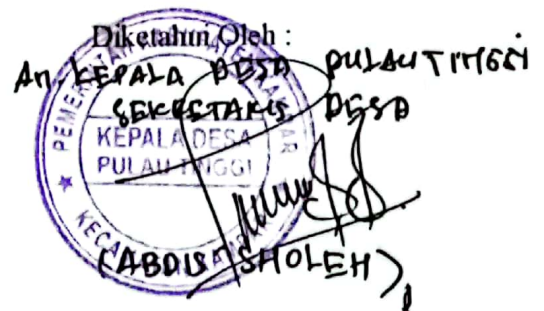 Diketahui Oleh :
An. KEPALA DESA PULAU TINGGI
SEKRETARIS DESA
KEPALA DESA
PULAU TINGGI
(ABDUS SHOLEH)